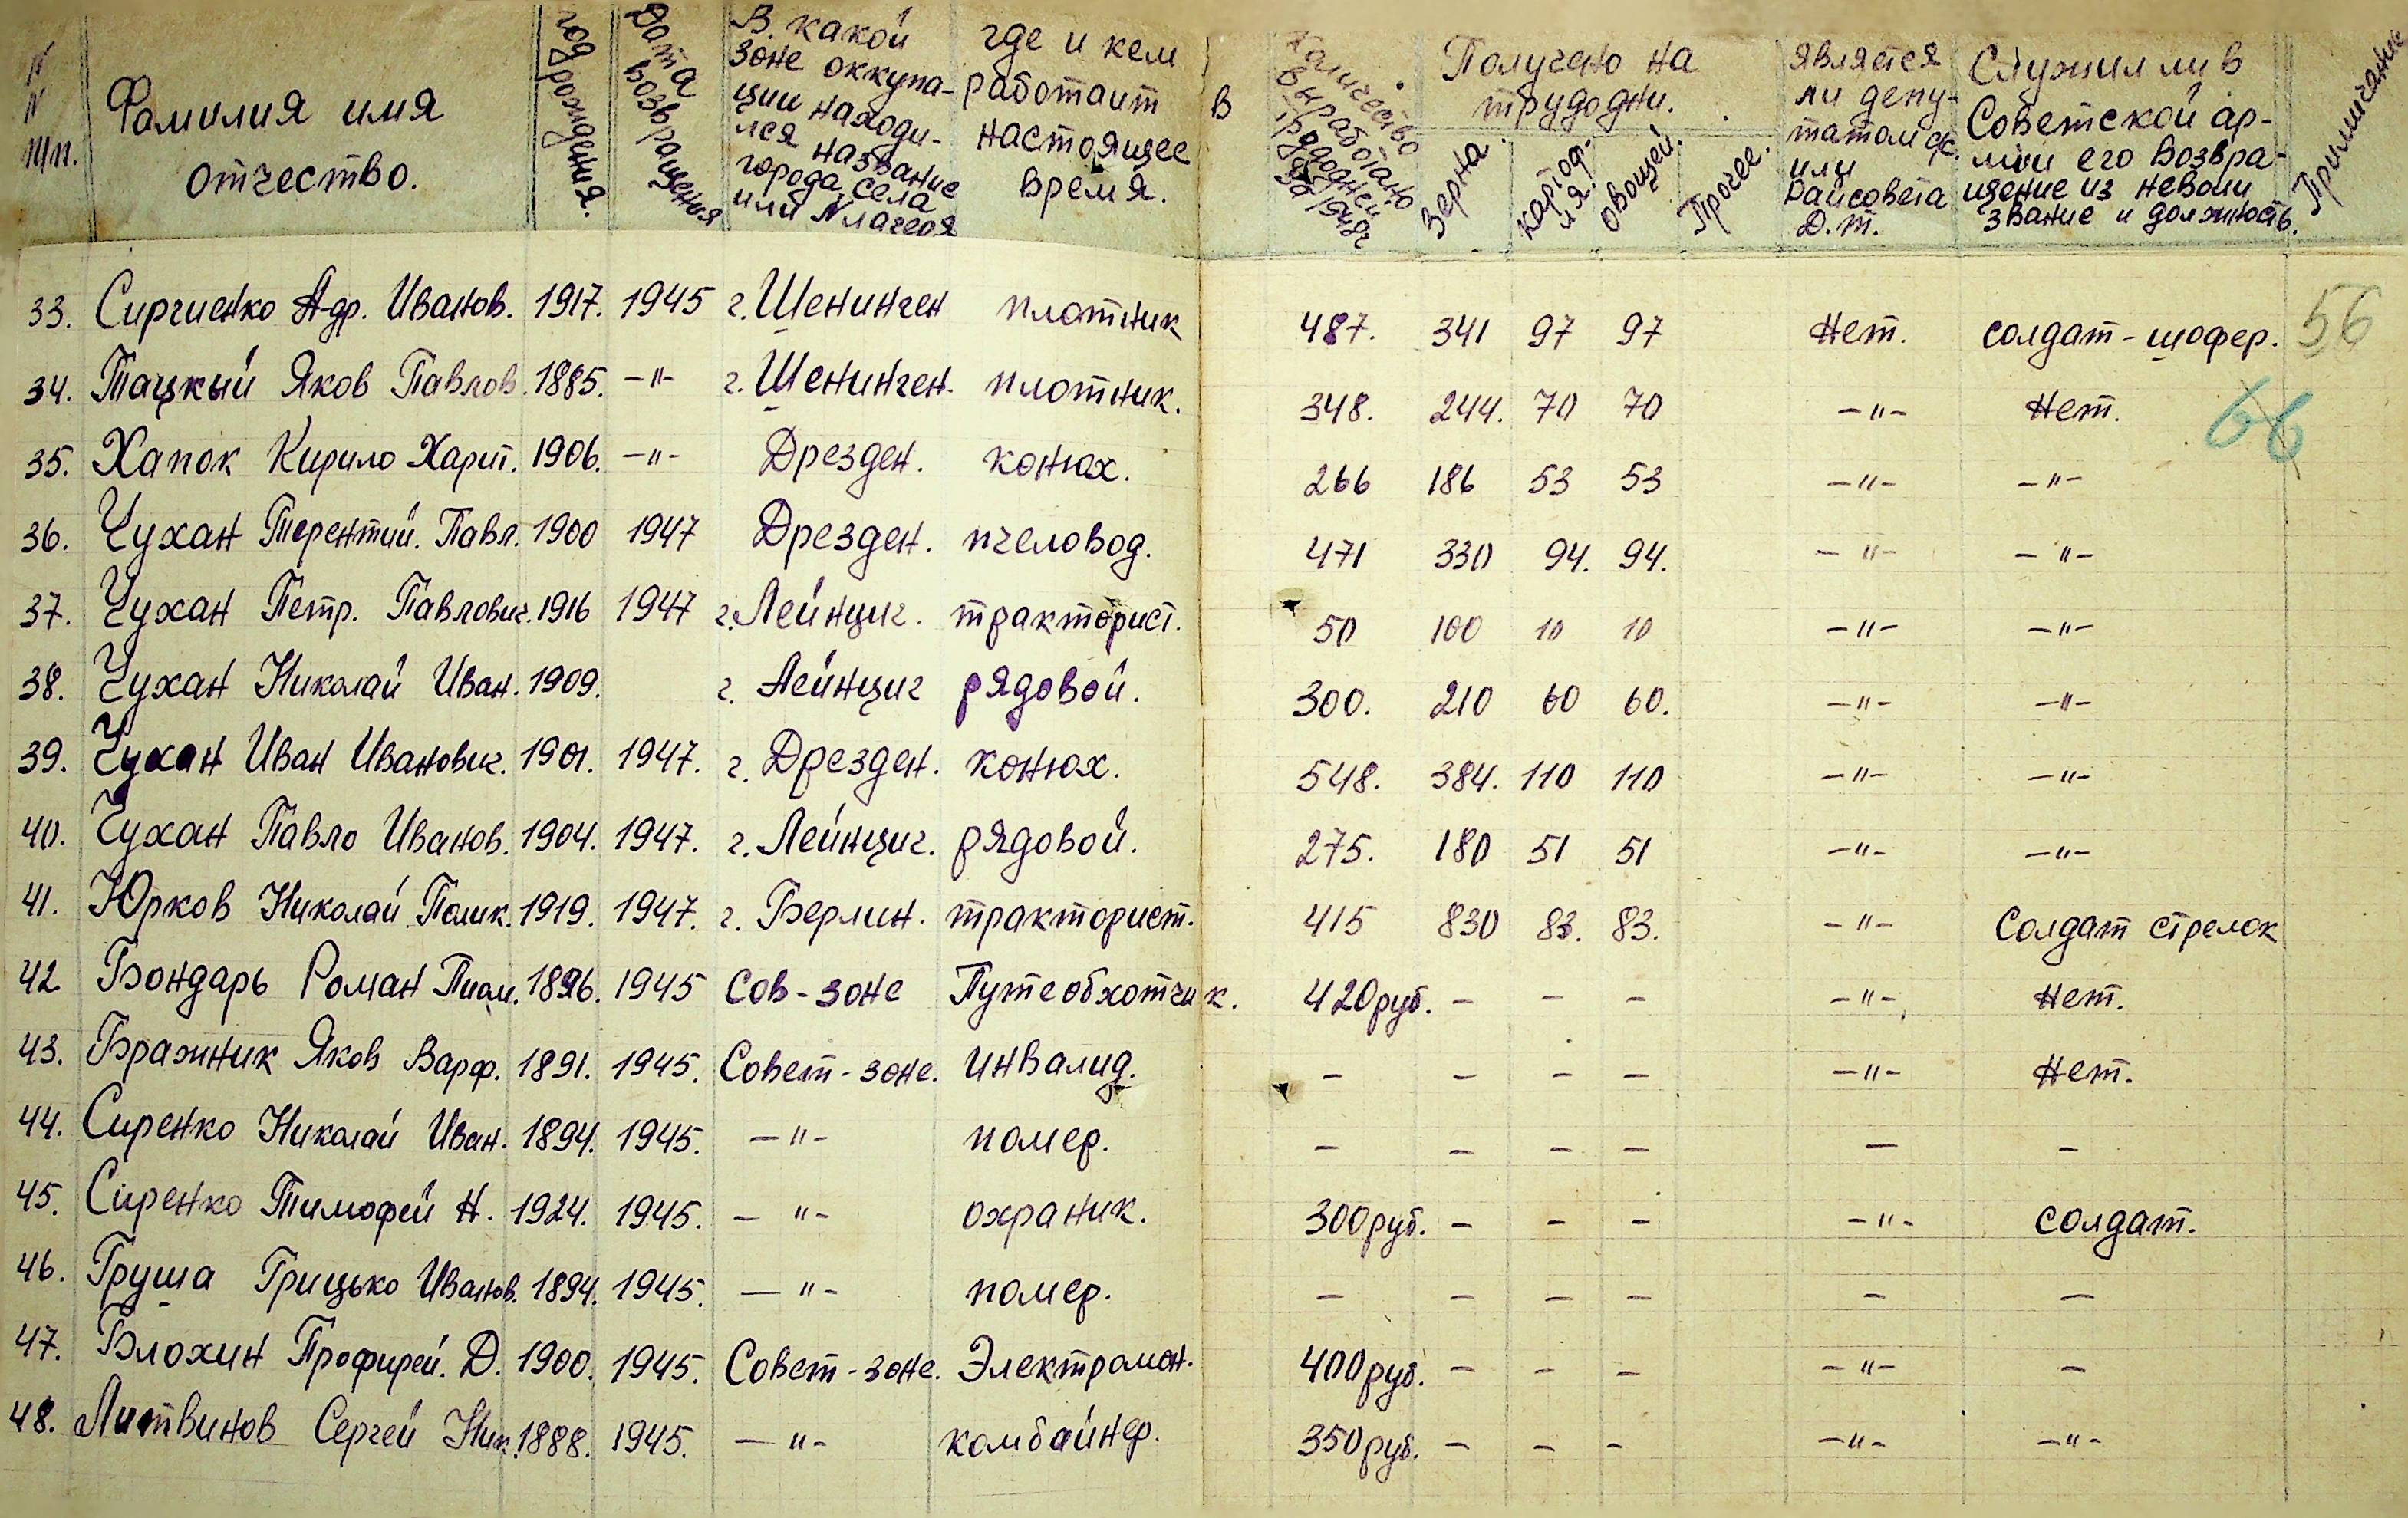 № № п/п.
Фамилия имя отчество.
год рождения.
Дата возвращения
В какой зоне оккупации находился название города, села или № лагеря
где и кем работаит в настоящее время.
выработано трудодней за
Получено на трудодни.
Зерна.
картоф-ля.
овощей.
Прочее.
является ли депутатом с/с. или Райсовета Д.т.
Служил ли в Советской армии его возвращение из неволи звание и должность.
Примичание
33. Сиргиенко Адр. Иванов. 1917. 1945 г. Шенинген плотник 487. 341 97 97 Нет. солдат-шофер. 56
34. Тацкый Яков Павлов. 1885. -"- г. Шенинген. плотник. 348. 244. 70 70 -"- Нет. 66
35. Хапок Кирило Харит. 1906. -"- Дрезден. конюх. 266 186 53 53 -"- -"-
36. Чухан Терентий. Павл. 1900 1947 Дрезден. пчеловод. 471 330 94. 94. -"- -"-
37. Чухан Петр. Павлович. 1916 1947 г. Лейнциг. тракторист. 50 100 10 10 -"- -"-
38. Чухан Николай Иван. 1909. г. Лейнциг рядовой. 300. 210 60 60. -"- -"-
39. Чухан Иван Иванович. 1901. 1947. г. Дрезден. конюх. 548. 384. 110 110 -"- -"-
40. Чухан Павло Иванов. 1904. 1947. г. Лейнциг. рядовой. 275. 180 51 51 -"- -"-
41. Юрков Николай Полик. 1919. 1947. г. Берлин. тракторист. 415 830 83. 83. -"- Солдат стрелок
42 Бондарь Роман 1896. 1945 Сов-зоне Путеобхотчик. 420руб. - - - -"- Нет.
43. Бражник Яков Варф. 1891. 1945. Совет-зоне. инвалид. - - - - -"- Нет.
44. Сиренко Николай Иван. 1894. 1945. -"- помер. - - - - - -
45. Сиренко Тимофей Н. 1924. 1945. -"- охраник. 300руб. - - - -"- солдат.
46. Груша Грицько Иванов. 1894. 1945. -"- помер. - - - - - -
47. Блохин Профирей. Д. 1900. 1945. Совет-зоне. Электромон. 400руб. - - - -"- -
48. Литвинов Сергей Ник. 1888. 1945. -"- комбайнер. 350руб. - - - -"- -"-